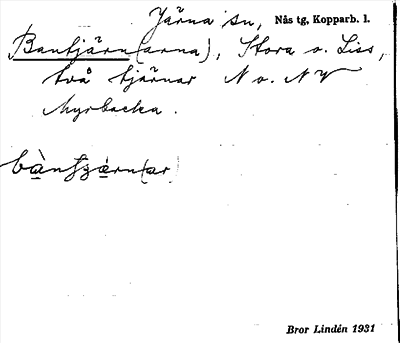 Järna sn, Nås tg, Kopparb. l.
Bantjärn(arna), Stora o. Liss,
två tjärnar N o. NV
Myrbacka.
Bror Lindén 1931